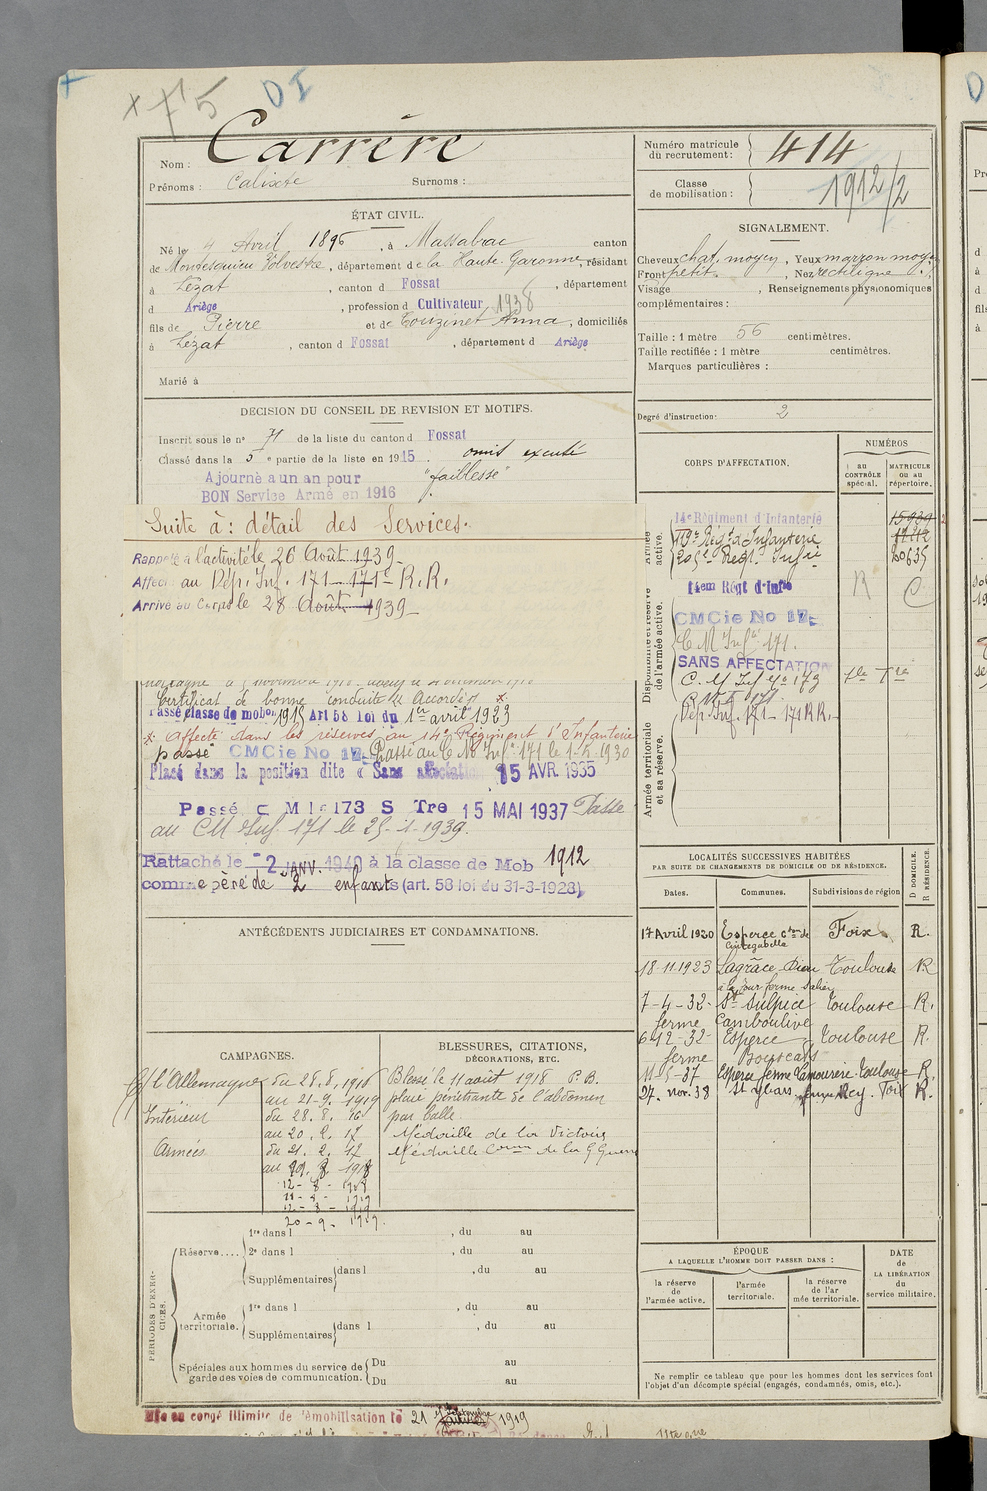 + 75 DI
Nom : Carrère
Prénoms : Calixte Surnoms :
Numéro matricule du recrutement : 414
Classe de mobilisation : 1912/2
ÉTAT CIVIL.
Né le 4 Avril 1895, à Massabrac canton
de Montesquieu Volvestre, département de la Haute-Garonne, résidant
à Lézat, canton d Fossat, département
d Ariège, profession d Cultivateur 1938
fils de Pierre et de Touzinet Anna, domiciliés
à Lézat, canton d Fossat, département d Ariège
Marié à
SIGNALEMENT.
Cheveux chat. moyen, Yeux marron moyen
Front petit. Nez rectiligne
Visage , Renseignements physionomiques
complémentaires :
Taille : 1 mètre 56 centimètres.
Taille rectifiée : 1 mètre centimètres.
Marques particulières :
Degré d'instruction : 2
DECISION DU CONSEIL DE REVISION ET MOTIFS.
Inscrit sous le n° 71 de la liste du canton d Fossat
Classé dans la 5e partie de la liste en 1915. omis excusé
Ajourné a un an pour "faiblesse"
BON Service Armé en 1916
Suite à : détail des Services.
Rappelé à l'activité le 26 Août 1939
Affecté au Dép. Inf. 171 - 171e R.R.
Arrivé au Corps le 28 Août 1939
Certificat de bonne conduite "Accordé" *
Passé classe de mobon 1915 Art 58 loi du 1er avril 1923
* Affecté dans les réserves au 14e Régiment d'Infanterie
passé CMCie No 17 Passé au C.M. Inf. 171 le 1-5-1930
Placé dans la position dite « Sans affectation 15 AVR. 1935
Passé C M I 173 S Tre 15 MAI 1937 Passé
au CM Inf. 171 le 25-1-1939.
Rattaché le 2 JANV. 1940 à la classe de Mob 1912
comme père de 2 enfants (art. 58 loi du 31-3-1928)
CORPS D'AFFECTATION.
NUMÉROS
au CONTRÔLE spécial.
MATRICULE ou au répertoire.
Armée active.
14e Régiment d'Infanterie 15939
Régt d'Infanterie 17212
Regt Infie 20635
Disponibilité et réserve de l'armée active.
14em Régt d'Infie R C
CMCie No 17
C M Infie 171.
SANS AFFECTATION
C. M Inf 173
C.M.I. 171
Dép. Inf. 171 - 171 RR.
Armée territoriale et sa réserve.
ANTÉCÉDENTS JUDICIAIRES ET CONDAMNATIONS.
LOCALITÉS SUCCESSIVES HABITÉES
PAR SUITE DE CHANGEMENTS DE DOMICILE OU DE RÉSIDENCE.
Dates. Communes. Subdivisions de région D DOMICILE. R RÉSIDENCE.
17 Avril 1920 Esperce Cton de Cintegabelle Foix R.
18-11-1923 Lagrâce-Dieu Toulouse R
7-4-32 St Sulpice Toulouse R.
ferme Camboulive
6-12-32 Esperce Toulouse R.
ferme
11-5-37 Esperce ferme Toulouse R.
27. nov. 38 St Ybars. ferme Rey. Foix R.
CAMPAGNES.
C/ l'Allemagne du 28. 8. 1916
au 21-9. 1919
Intérieur du 28. 8. 16
au 20. 2. 17
Armées du 21. 2. 17
BLESSURES, CITATIONS,
DÉCORATIONS, ETC.
Blessé le 11 août 1918 P. B.
plaie pénétrante de l'abdomen
par balle
Médaille de la Victoire
Médaille Comm de la Gde Guerre
PÉRIODES D'EXERCICES.
Réserve.... 1re dans l , du au
2e dans l , du au
Supplémentaires dans l , du au
Armée territoriale. 1re dans l , du au
Supplémentaires dans l , du au
Spéciales aux hommes du service de Du au
garde des voies de communication. Du au
ÉPOQUE
A LAQUELLE L'HOMME DOIT PASSER DANS :
la réserve de l'armée active.
l'armée territoriale.
la réserve de l'armée territoriale.
DATE de LA LIBÉRATION du service militaire.
Ne remplir ce tableau que pour les hommes dont les services font
l'objet d'un décompte spécial (engagés, condamnés, omis, etc.).
Mis en congé illimité de démobilisation le 21 septembre 1919